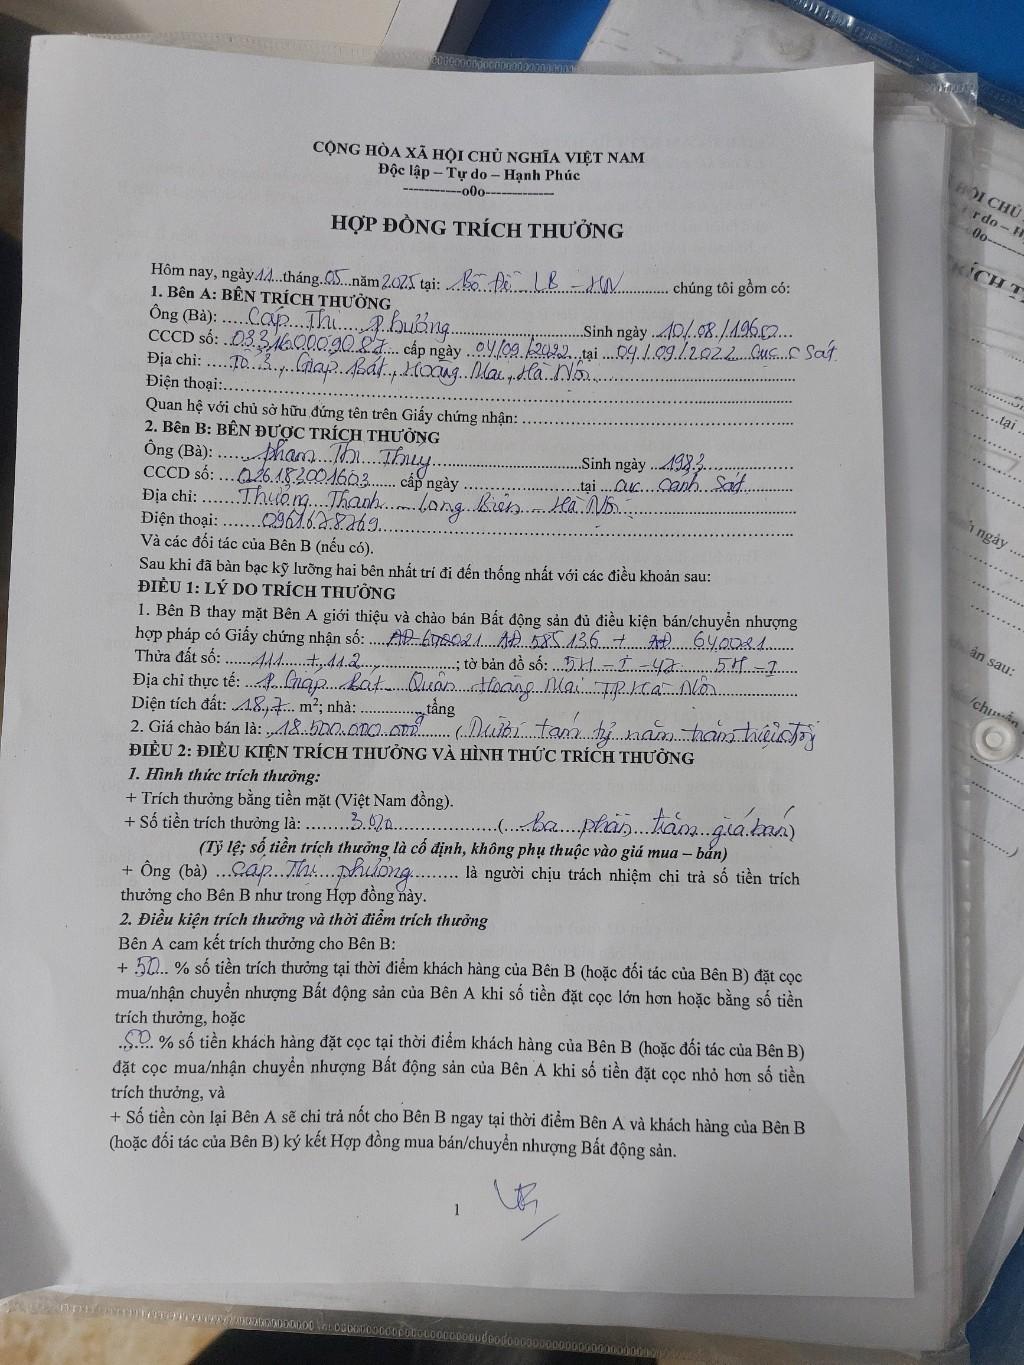 CỘNG HÒA XÃ HỘI CHỦ NGHĨA VIỆT NAM
Độc lập – Tự do – Hạnh Phúc
-----------o0o-------------
HỢP ĐỒNG TRÍCH THƯỞNG
Hôm nay, ngày 11 tháng 05 năm 2025 tại: Bồ Đề LB - HN chúng tôi gồm có:
1. Bên A: BÊN TRÍCH THƯỞNG
Ông (Bà): Cáp Thị Phưởng Sinh ngày 10/08/1960
CCCD số: 033160009087 cấp ngày 04/09/2022 tại 04/09/2022 cục C Sát
Địa chỉ: Tổ 3, Giáp Bát, Hoàng Mai, Hà Nội
Điện thoại:
Quan hệ với chủ sở hữu đứng tên trên Giấy chứng nhận:
2. Bên B: BÊN ĐƯỢC TRÍCH THƯỞNG
Ông (Bà): Phạm Thị Thuý Sinh ngày 1983
CCCD số: 026183001603 cấp ngày tại cục cảnh sát
Địa chỉ: Thượng Thanh - Long Biên - Hà Nội
Điện thoại: 0961678769
Và các đối tác của Bên B (nếu có).
Sau khi đã bàn bạc kỹ lưỡng hai bên nhất trí đi đến thống nhất với các điều khoản sau:
ĐIỀU 1: LÝ DO TRÍCH THƯỞNG
1. Bên B thay mặt Bên A giới thiệu và chào bán Bất động sản đủ điều kiện bán/chuyển nhượng
hợp pháp có Giấy chứng nhận số: AĐ 585136 + AĐ 640021
Thửa đất số: 111 + 112; tờ bản đồ số: 5H - I - 42 5H - I
Địa chỉ thực tế: P. Giáp Bát Quận Hoàng Mai TP Hà Nội
Diện tích đất: 18,7 m²; nhà: tầng
2. Giá chào bán là: 18.500.000.000đ (Mười tám tỷ năm trăm triệu đồng
ĐIỀU 2: ĐIỀU KIỆN TRÍCH THƯỞNG VÀ HÌNH THỨC TRÍCH THƯỞNG
1. Hình thức trích thưởng:
+ Trích thưởng bằng tiền mặt (Việt Nam đồng).
+ Số tiền trích thưởng là: 3% (ba phần trăm giá bán)
(Tỷ lệ; số tiền trích thưởng là cố định, không phụ thuộc vào giá mua – bán)
+ Ông (bà) Cáp Thị Phưởng là người chịu trách nhiệm chi trả số tiền trích
thưởng cho Bên B như trong Hợp đồng này.
2. Điều kiện trích thưởng và thời điểm trích thưởng
Bên A cam kết trích thưởng cho Bên B:
+ 50 % số tiền trích thưởng tại thời điểm khách hàng của Bên B (hoặc đối tác của Bên B) đặt cọc
mua/nhận chuyển nhượng Bất động sản của Bên A khi số tiền đặt cọc lớn hơn hoặc bằng số tiền
trích thưởng, hoặc
50 % số tiền khách hàng đặt cọc tại thời điểm khách hàng của Bên B (hoặc đối tác của Bên B)
đặt cọc mua/nhận chuyển nhượng Bất động sản của Bên A khi số tiền đặt cọc nhỏ hơn số tiền
trích thưởng, và
+ Số tiền còn lại Bên A sẽ chi trả nốt cho Bên B ngay tại thời điểm Bên A và khách hàng của Bên B
(hoặc đối tác của Bên B) ký kết Hợp đồng mua bán/chuyển nhượng Bất động sản.
1